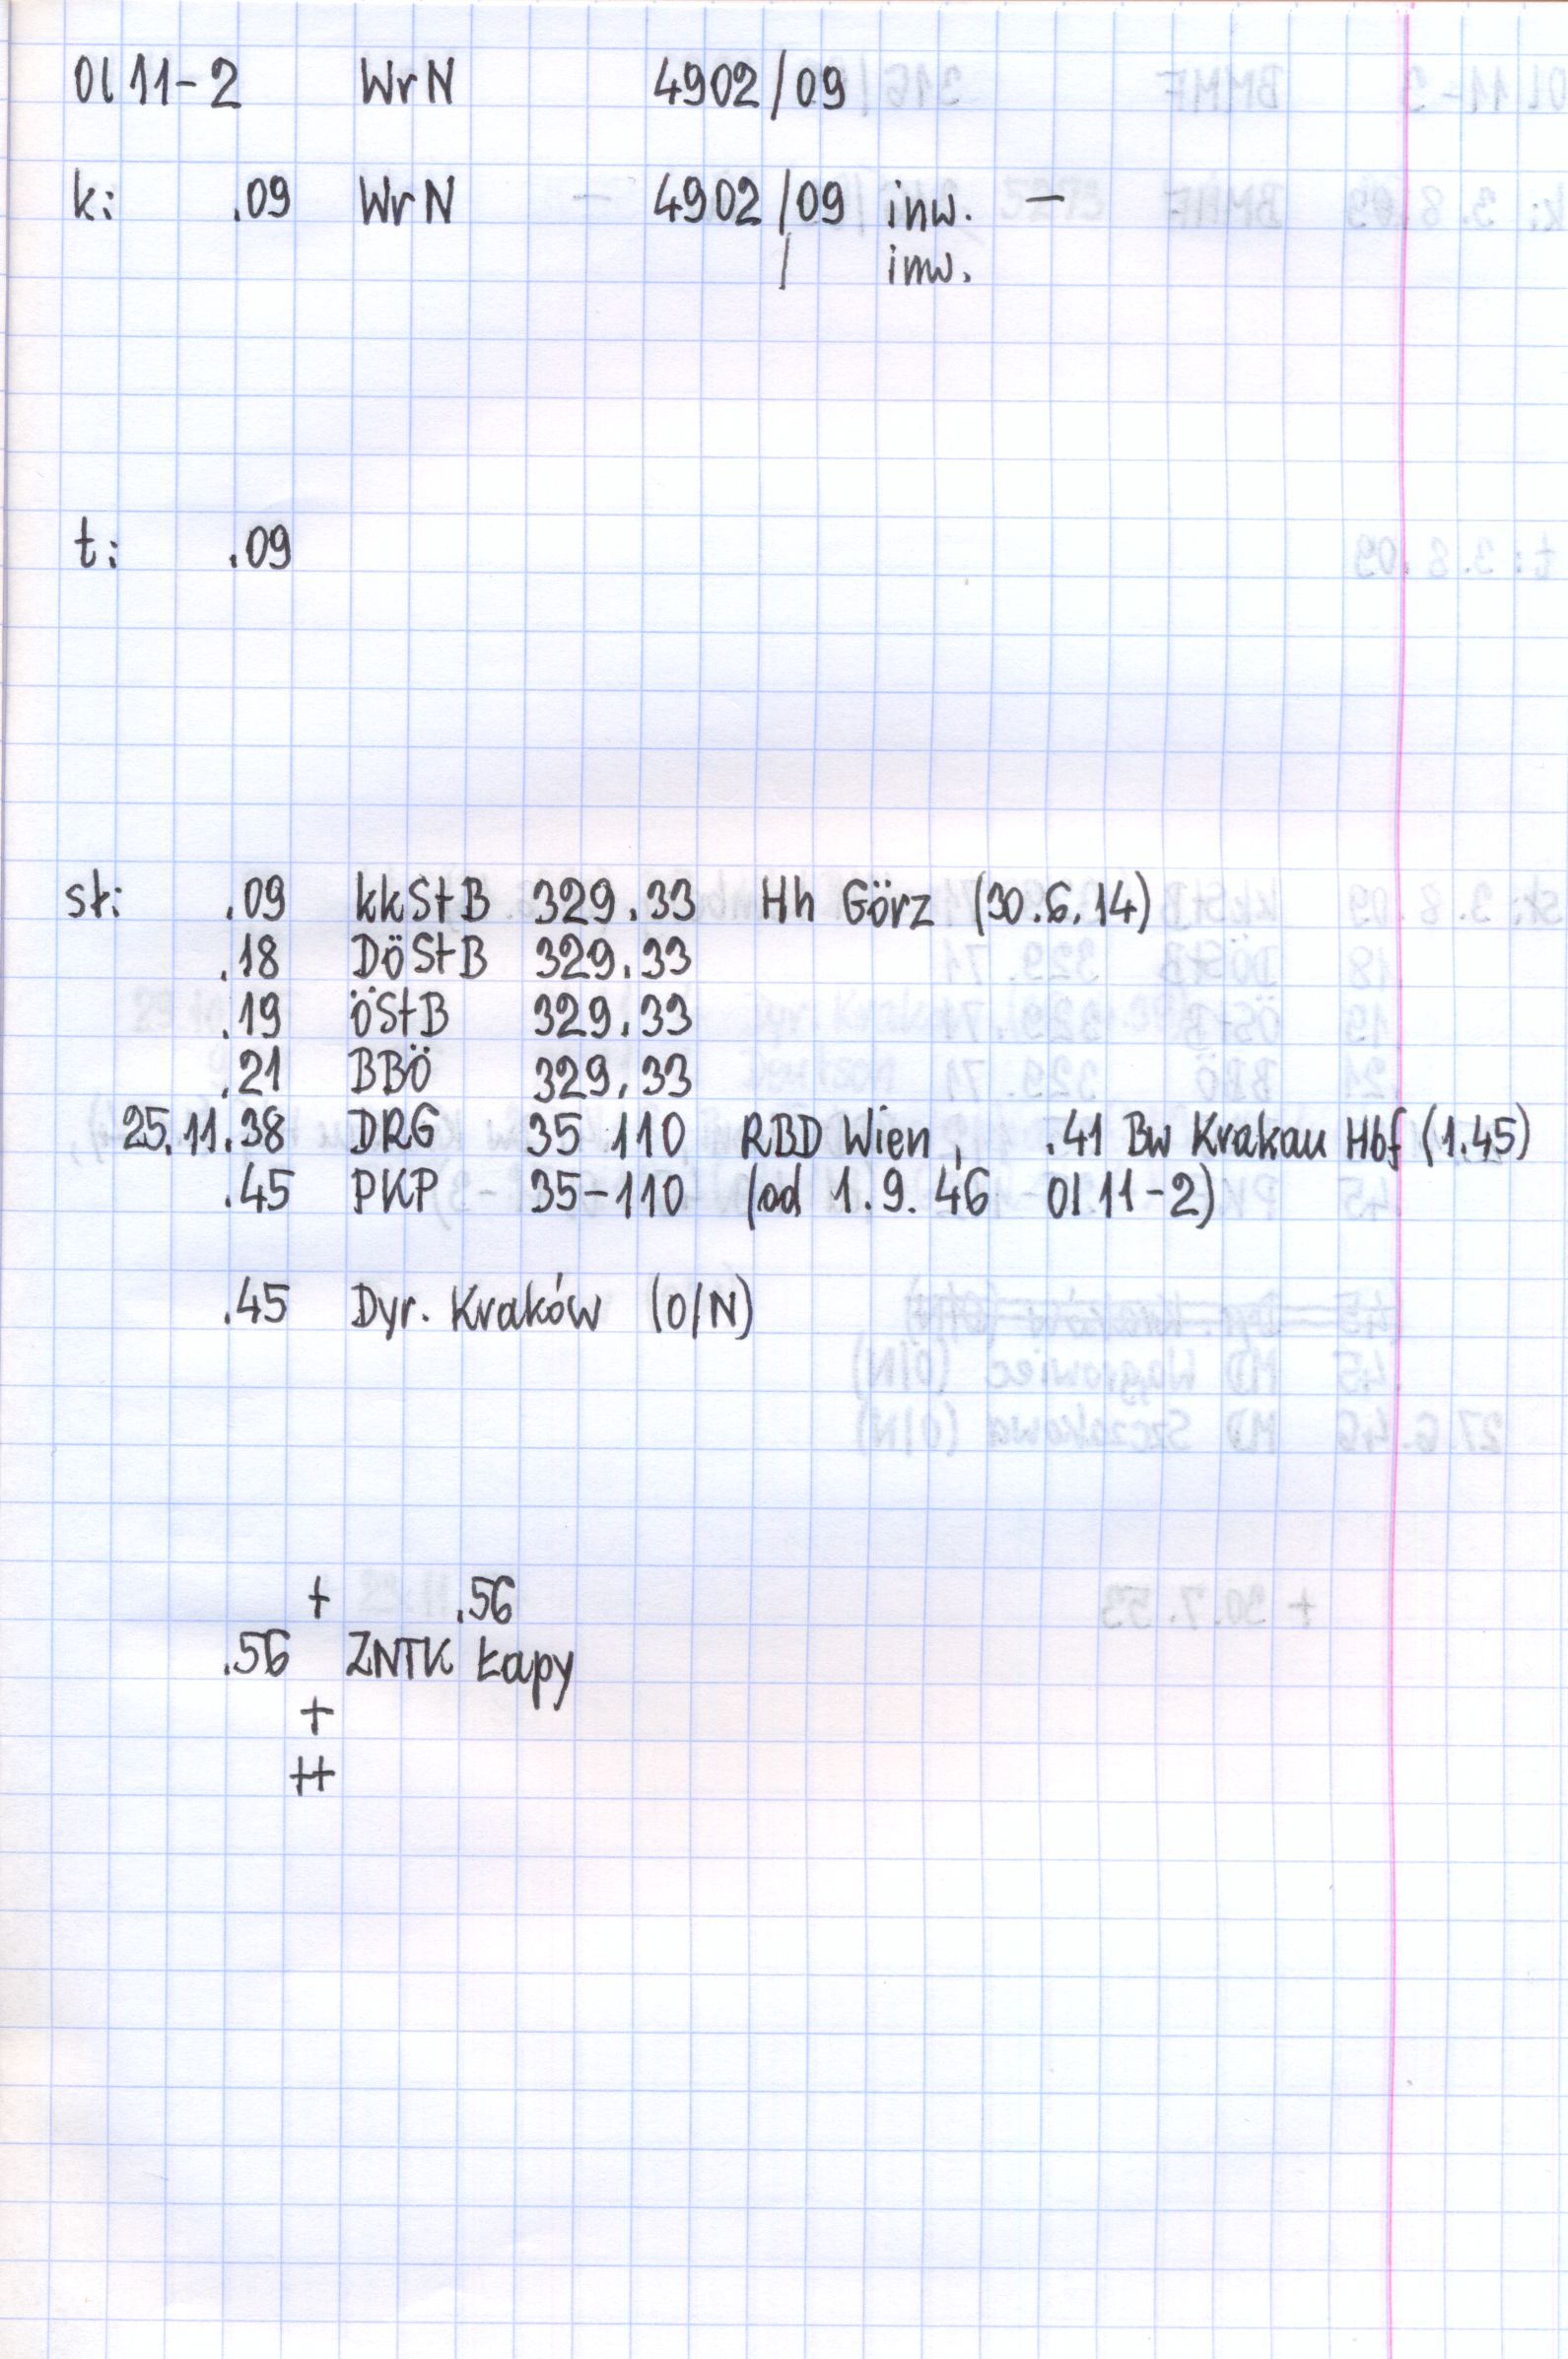 Ol 11-2 WrN 4902/09
k: .09 WrN - 4902/09 inw. -
/ inw.
t: .09
st: .09 kkStB 329.33 Hh Görz (30.6.14)
.18 DöStB 329.33
.19 öStB 329.33
.21 BBÖ 329.33
25.11.38 DRG 35 110 RBD Wien, .41 Bw Krakau Hbf (1.45)
.45 PKP 35-110 (od 1.9.46 Ol 11-2)
.45 Dyr. Kraków (O/N)
+ .56
.56 ZNTK Łapy
+
++